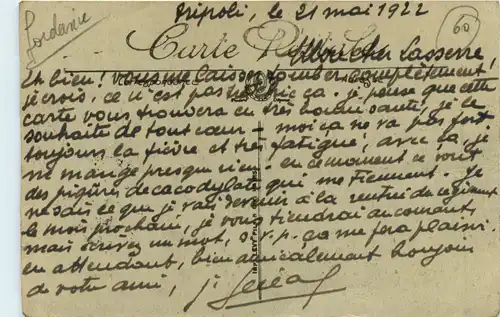 Tripoli, le 21 mai 1922
60
Jordanie
Carte Postale
Mon cher Lasserre
Eh bien! vous me laissez tomber complètement,
je crois, ce n'est pas très chic ça. je pense que cette
carte vous trouvera en très bonne santé, je le
souhaite de tout cœur – moi ça ne va pas fort
toujours la fièvre et très fatigué, avec ça, je
ne mange presque rien – en ce moment ce sont
des piqûres de cacodylate qui me tiennent. Je
ne sais ce que je vais devenir à la rentrée du régiment
le mois prochain, je vous tiendrai au courant,
mais écrivez un mot, s.v.p. ça me fera plaisir.
en attendant, bien amicalement bonjour
de votre ami,